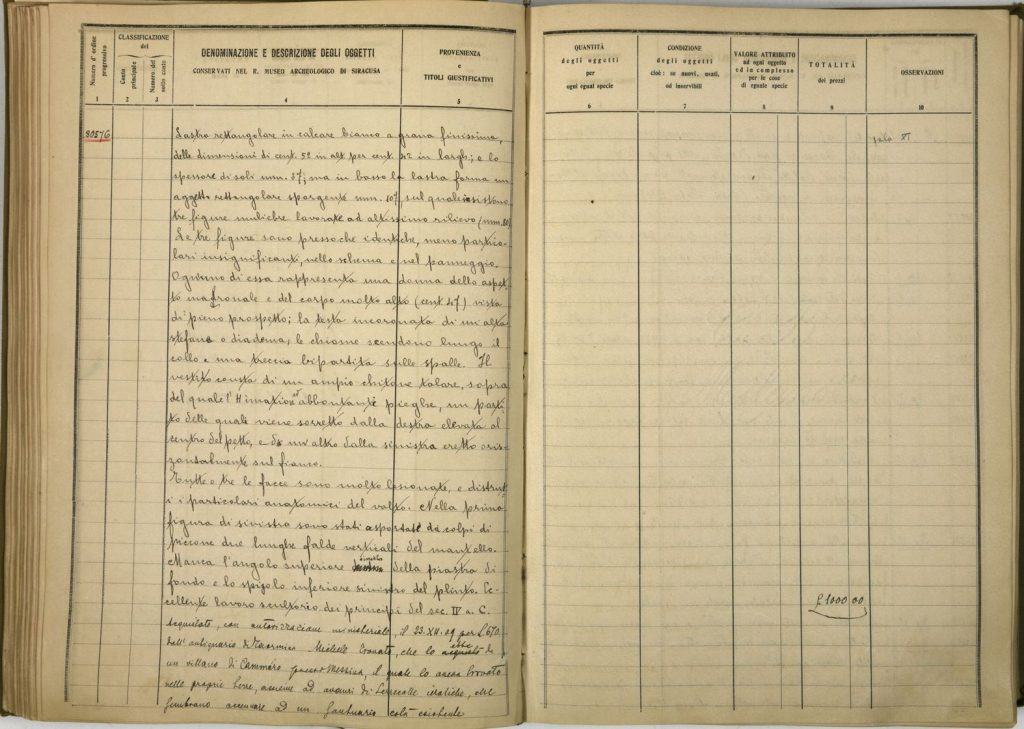 Numero d'ordine progressivo
CLASSIFICAZIONE
del
Conto principale
Numero del sotto conto
DENOMINAZIONE E DESCRIZIONE DEGLI OGGETTI
CONSERVATI NEL R. MUSEO ARCHEOLOGICO DI SIRACUSA
PROVENIENZA
e
TITOLI GIUSTIFICATIVI
QUANTITÀ
degli oggetti
per
ogni egual specie
CONDIZIONE
degli oggetti
cioè: se nuovi, usati,
od inservibili
VALORE ATTRIBUITO
ad ogni oggetto
ed in complesso
per le cose
di eguale specie
TOTALITÀ
dei prezzi
OSSERVAZIONI
1 2 3 4 5 6 7 8 9 10
30576
Lastra rettangolare in calcare bianco a grana finissima,
delle dimensioni di cent. 52 in alt. per cent. 42 in largh; e lo
spessore di soli mm. 57; ma in basso la lastra forma un
aggetto rettangolare sporgente mm. 107, sul quale insistono
tre figure muliebre lavorate ad altissimo rilievo (mm. 80)
Le tre figure sono pressoche identiche, meno partico-
lari insignificanti, nello schema e nel panneggio.
Ognuno di essa rappresenta una donna dello aspet-
to matronale e del corpo molto alto (cent. 47) vista
di pieno prospetto; la testa incoronata di un'alta
stefane o diadema, le chiome scendono lungo il
collo e una treccia bipartita sulle spalle. Il
vestito consta di un ampio chitone talare, sopra
del quale l'Himation ad abbontanti pieghe, un parti-
to delle quali viene sorretto dalla destra elevata al
centro del petto, e da un'altro dalla sinistra eretto oriz-
zontalmente sul fianco.
Tutte e tre le facce sono molto lesionate, e distrut-
ti i particolari anatomici del volto. Nella prima
figura di sinistra sono stati asportate da colpi di
piccone due lunghe falde verticali del mantello.
Manca l'angolo superiore sinistro della piastra di
fondo e lo spigolo inferiore sinistro del plinto. Ec-
cellente lavoro scultorio dei principi del sec. IV a. C.
Acquistato, con autorizzazione ministeriale, il 23. XII. 09 per £ 670.
dall'antiquario di Taormina Michele che lo ebbe da
un villano di Cammaro presso Messina, il quale lo aveva trovato
nelle proprie terre, assieme ad avanzi di terrecotte ieratiche, che
sembrano accennare ad un santuario colà esistente
£ 1000 00
sala XI